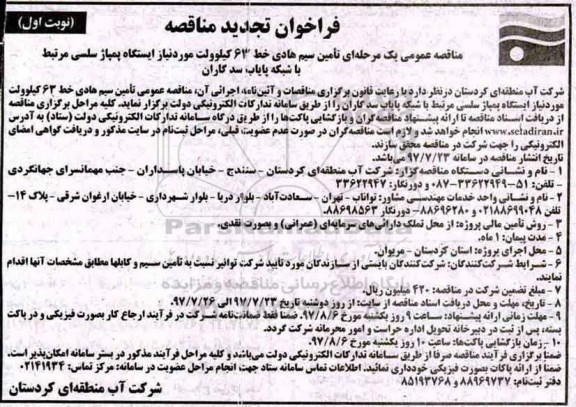 فراخوان تجدید مناقصه
(نوبت اول)
مناقصه عمومی یک مرحله‌ای تأمین سیم هادی خط ۶۳ کیلوولت موردنیاز ایستگاه پمپاژ سلسی مرتبط
با شبکه پایاب سد گاران
شرکت آب منطقه‌ای کردستان درنظر دارد با رعایت قانون برگزاری مناقصات و آئین‌نامه اجرائی آن، مناقصه عمومی تأمین سیم هادی خط ۶۳ کیلوولت
موردنیاز ایستگاه پمپاژ سلسی مرتبط با شبکه پایاب سد گاران را از طریق سامانه تدارکات الکترونیکی دولت برگزار نماید. کلیه مراحل برگزاری مناقصه
از دریافت اسناد مناقصه تا ارائه پیشنهاد مناقصه‌گران و بازگشایی پاکت‌ها را از طریق درگاه سامانه تدارکات الکترونیکی دولت (ستاد) به آدرس
www.setadiran.ir انجام خواهد شد و لازم است مناقصه‌گران در صورت عدم عضویت قبلی، مراحل ثبت‌نام در سایت مذکور و دریافت گواهی امضای
الکترونیکی را جهت شرکت در مناقصه محقق سازند.
تاریخ انتشار مناقصه در سامانه ۹۷/۷/۲۳ می‌باشد.
۱- نام و نشانی دستگاه مناقصه‌گزار: شرکت آب منطقه‌ای کردستان - سنندج - خیابان پاسداران - جنب مهمانسرای جهانگردی
- تلفن: ۵۱-۳۳۶۲۲۹۴۹-۰۸۷ و دورنگار: ۳۳۶۲۲۹۴۷
۲- نام و نشانی واحد خدمات مهندسی مشاور: تواناب - تهران - سعادت‌آباد - بلوار دریا - بلوار شهرداری - خیابان ارغوان شرقی - پلاک ۱۴-
تلفن ۰۲۱۸۸۶۹۹۰۴۸ و ۸۸۶۹۶۲۸۰- دورنگار ۸۸۶۹۸۵۶۳.
۳- روش تأمین مالی پروژه: از محل تملک دارائی‌های سرمایه‌ای (عمرانی) و بصورت نقدی.
۴- مدت پیمان: ۱ ماه.
۵- محل اجرای پروژه: استان کردستان - مریوان.
۶- شرایط شرکت‌کنندگان: شرکت‌کنندگان بایستی از سازندگان مورد تایید شرکت توانیر نسبت به تأمین سیم و کابلها مطابق مشخصات آنها اقدام
نمایند.
۷- مبلغ تضمین شرکت در مناقصه: ۴۳۰ میلیون ریال.
۸- تاریخ، مهلت و محل دریافت اسناد مناقصه از سایت: از روز دوشنبه تاریخ ۹۷/۷/۲۳ الی ۹۷/۷/۲۶.
۹- مهلت زمانی ارائه پیشنهاد: ساعت ۹ روز یکشنبه مورخ ۹۷/۸/۶. ضمنا فقط ضمانت‌نامه شرکت در فرآیند ارجاع کار بصورت فیزیکی و در پاکت
بسته، پس از ثبت در دبیرخانه تحویل اداره حراست و امور محرمانه شرکت گردد.
۱۰- زمان بازگشایی پاکت‌ها: ساعت ۱۰ روز یکشنبه مورخ ۹۷/۸/۶
ضمنا برگزاری فرآیند مناقصه صرفا از طریق سامانه تدارکات الکترونیکی دولت می‌باشد و کلیه مراحل فرآیند مذکور در بستر سامانه امکان‌پذیر است.
ضمنا از ارائه پاکات بصورت فیزیکی خودداری نمائید. اطلاعات تماس سامانه ستاد جهت انجام مراحل عضویت در سامانه: مرکز تماس: ۰۲۱۴۱۹۳۴
دفتر ثبت‌نام: ۸۸۹۶۹۷۳۷ و ۸۵۱۹۳۷۶۸
شرکت آب منطقه‌ای کردستان